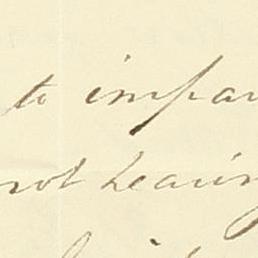 to impar
not hearing